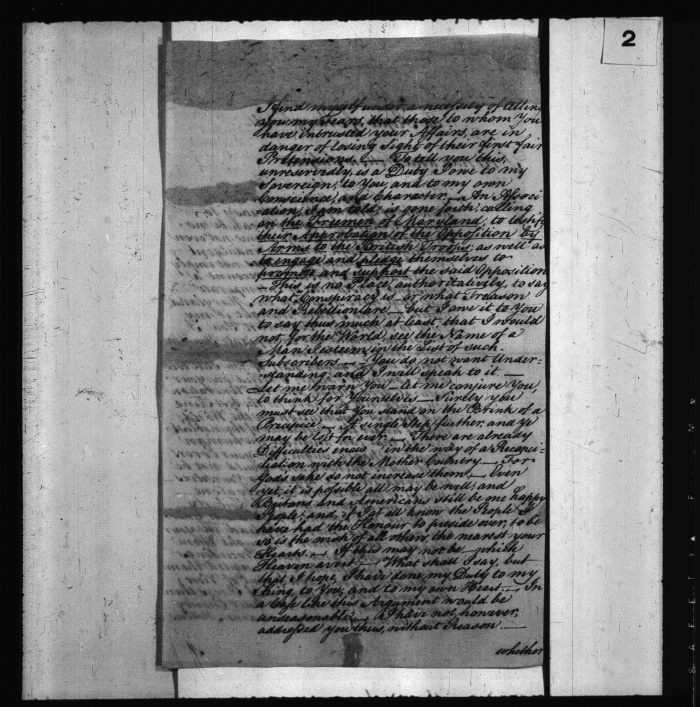 2
I find myself under a necessity of telling
you my Fears, that those, to whom You
have Intrusted your Affairs, are in
danger of losing Sight of their first fair
Pretensions. — To tell you this,
unreservedly, is a Duty I owe to my
Sovereign, to You, and to my own
Conscience, and Character. — An Associ-
ation, I am told, is gone forth, calling
on the Freemen of Maryland, to testify
their Approbation of the Opposition by
Arms to the British Troops, as well as
to engage and pledge themselves to
promote and support the said Opposition
— This is no Place, authoritatively, to say
what Conspiracy is — or what Treason
and Rebellion are — but I owe it to You
to say thus much at least, that I would
not for the World see the Name of a
Man I esteem in the List of such
Subscribers — You do not want Under-
standing; and I will speak to it —
Let me warn You — let me conjure You
to think for Yourselves — Surely you
must see that You stand on the Brink of a
Precipice — A single Step further, and ye
may be lost for ever — There are already
Difficulties enow in the way of a Reconci-
liation with the Mother Country — For
God's sake do not increase them — Even
yet, it is possible all may be well, and
Britons and Americans still be one happy
People; and, if I at all know the People I
have had the Honour to preside over, to be
so is the wish of all others the nearest your
Hearts. — If this may not be — which
Heaven avert — What shall I say, but
that, I hope, I have done my Duty to my
King, to You, and to my own Heart — In
a Case like this Argument would be
unseasonable — I have not, however,
addressed you thus, without Reason —
whether
S A F E T Y F I L M